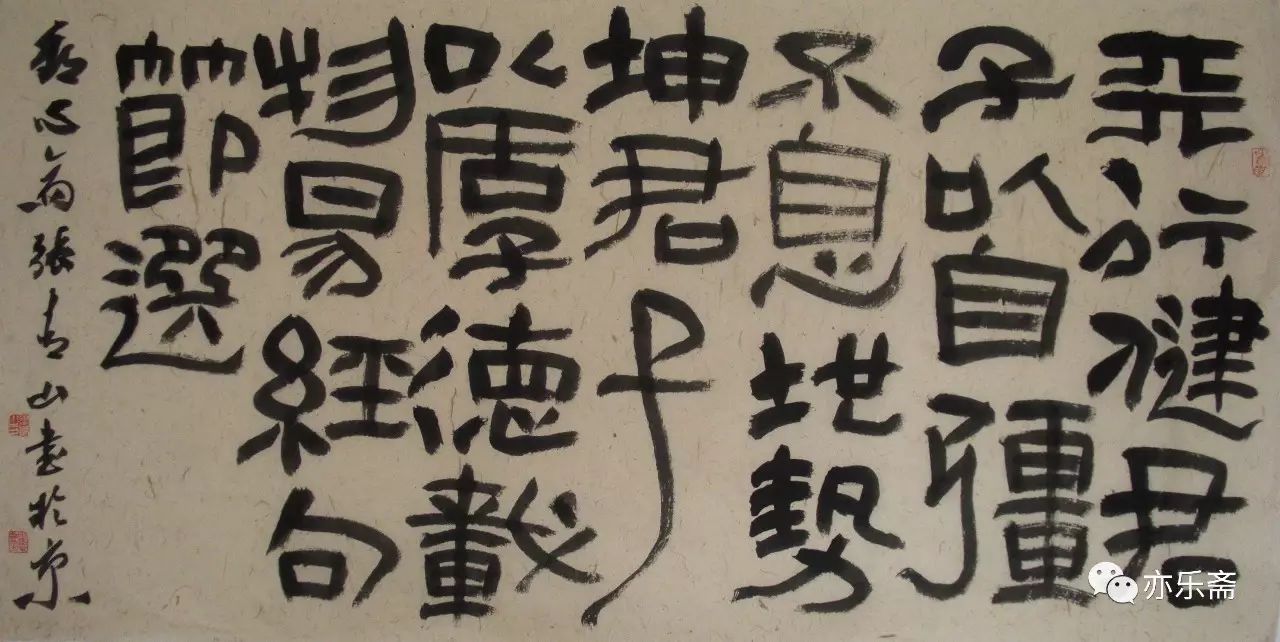 天行健君
子以自彊
不息地勢
坤君子
以厚德載
物易經句
節選
心張青山書於京
亦乐斋